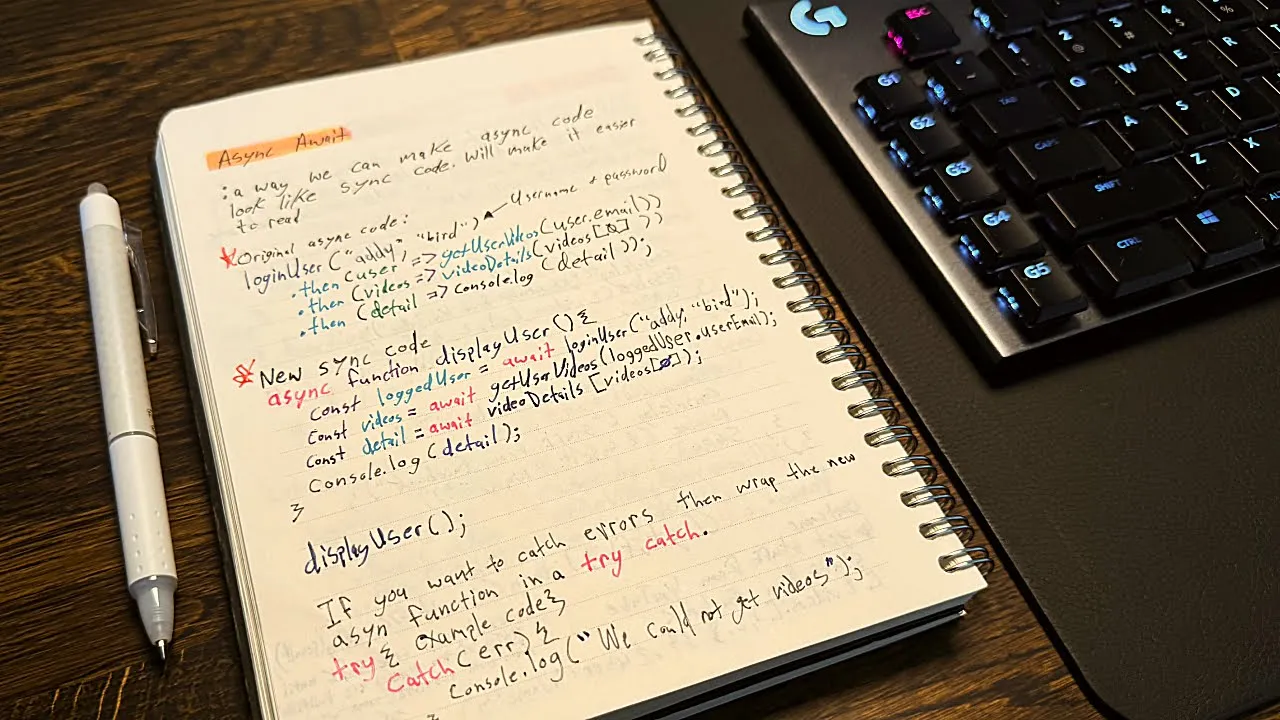 Async Await
: a way we can make async code
look like sync code. Will make it easier
to read
Username + password
Original async code:
loginUser ("addy", "bird")
.then (user => getUserVideos(user.email))
.then (videos => videoDetails(videos[0]))
.then (detail => console.log (detail));
New sync code
async function displayUser () {
const loggedUser = await loginUser("addy, "bird");
const videos = await getUserVideos(loggedUser.userEmail);
const detail = await videoDetails [videos[0]);
console.log (detail);
}
displayUser();
If you want to catch errors then wrap the new
asyn function in a try catch.
try { example code}
catch(err) {
console.log("We could not get videos");
}
G
ESC
1
2
3
4
G1
TAB
Q
W
E
R
G2
CAPS
A
S
D
G3
SHIFT
Z
X
G4
CTRL
G5